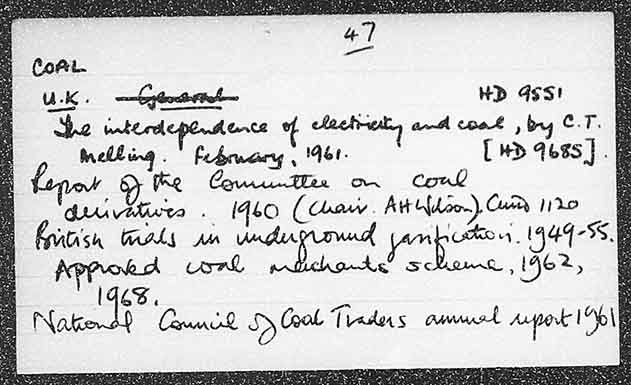 47
COAL
U.K. General HD 9551
The interdependence of electricity and coal, by C.T.
Melling. February, 1961. [HD 9685].
Report of the Committee on coal
derivatives. 1960 (Chair. AH Wilson). Cmnd 1120
British trials in underground gasification. 1949-55.
Approved coal merchants scheme, 1962,
1968.
National Council of Coal Traders annual report 1961